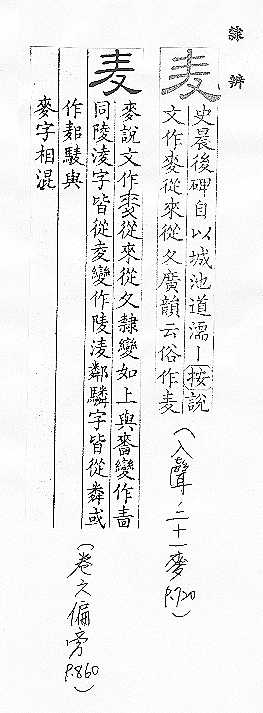 隸辨
麦 史晨後碑自以城池道濡丨按說
文作麥從來從夊廣韻云俗作麦
(入聲,二十一麥 P.720)
麦 麥說文作麥從來從夊隸變如上與嗇變作啬
同陵淩字皆從夌變作陵淩鄰驎字皆從粦或
作與
麥字相混
(卷六偏旁 P.860)